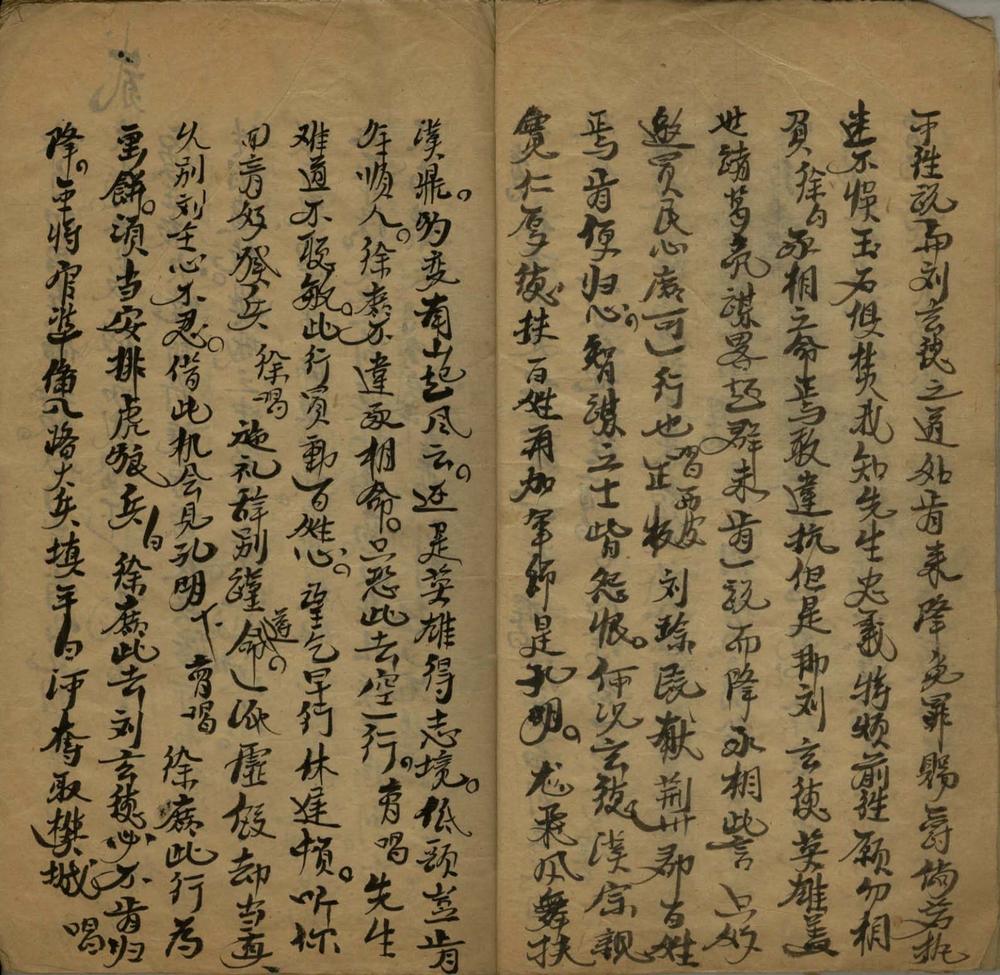 軍往說両刘玄德之道如肯来降免罪賜爵倘若执
迷不悞玉石俱焚我知先生忠義特煩前往願勿相
負 徐白 丞相之命焉敢違抗但是那刘玄德英雄盖
世諸葛亮謀畧超群未肯一説而降丞相此言只好
邀買民心庶可一行也 唱西皮 正板 刘琮民献荆州郡百姓
焉肯便归心 智謀之士皆怨恨 何况玄德漢宗親
寬仁厚德扶百姓 再加軍師是孔明 龙飛凤舞扶
漢鼎 豹变南山起风云 还是英雄得志境 低頭岂肯
年順人 徐庶不違丞相命 只恐此去空一行 曹唱 先生
难道不聪敏 此行買動百姓心 望乞早行休遲頓 听你
回音好發兵 徐唱 施礼辞別謹遵命 一派虛假却当真
久别刘主心不忍 借此机会見孔明 下 曹唱 徐庶此行為
画餅 須当安排虎狼兵 白 徐庶此去刘玄德必不肯归
降 軍將 八路大兵填平白河奪取樊城 唱
貳